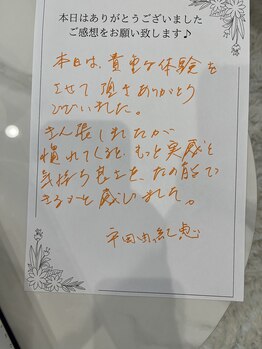 本日はありがとうございました
ご感想をお願い致します♪
本日は、貴重な体験を
させて頂きありがとう
ございました。
きん張しましたが
慣れてくると、もっと実感と
気持ち良さを、たの能で
きるかと感じました。
平田由紀恵